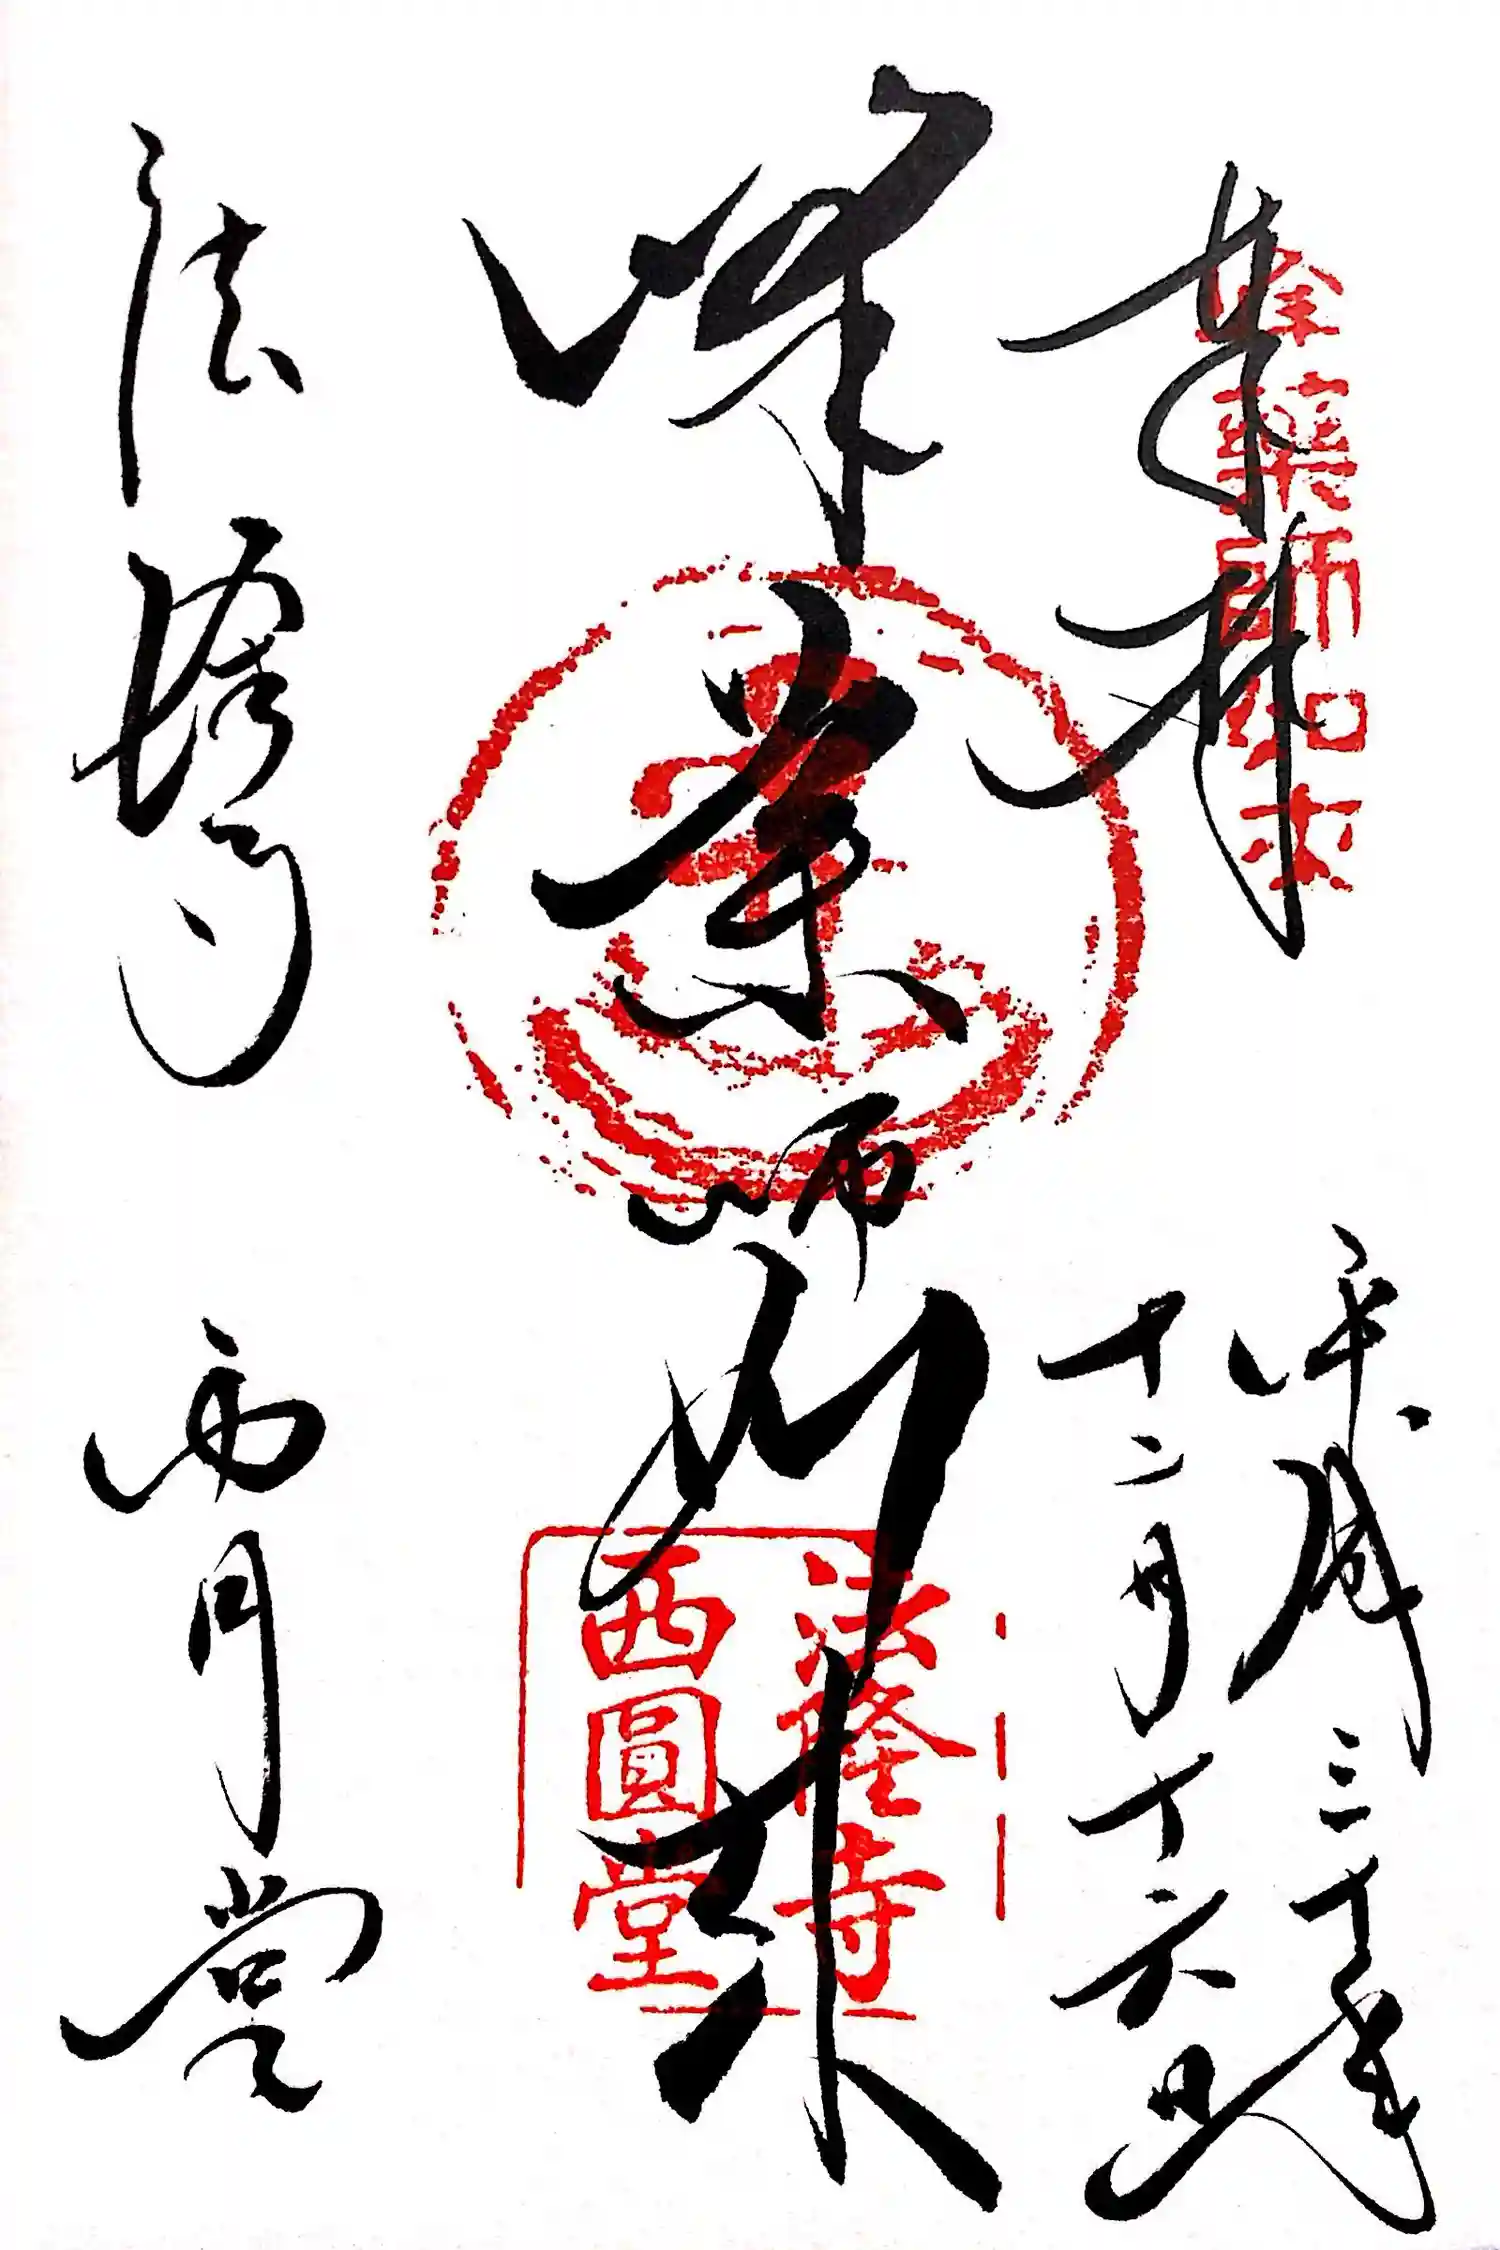 奉拝
平成三十年
十二月十六日
峰薬師如来
峯薬師如来
法隆寺
西円堂
法隆寺
西圓堂